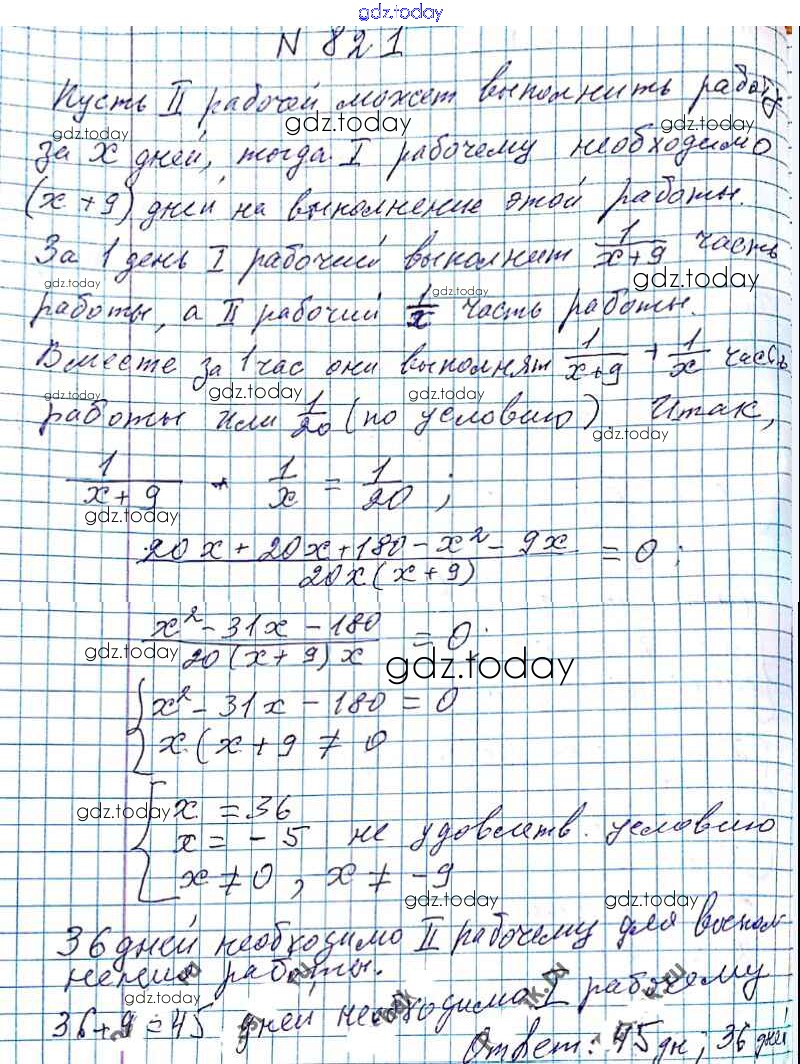 gdz.today
N 821
Пусть II рабочий может выполнить работу
gdz.today gdz.today gdz.today
за x дней, тогда I рабочему необходимо
(x+9) дней на выполнение этой работы.
За 1 день I рабочий выполнит 1/(x+9) часть
gdz.today gdz.today gdz.today
работы, а II рабочий 1/x часть работы.
Вместе за 1 час они выполнят 1/(x+9) + 1/x часть
gdz.today gdz.today
работы или 1/20 (по условию). Итак,
gdz.today
1/(x+9) + 1/x = 1/20;
gdz.today
(20x + 20x + 180 - x² - 9x)/(20x(x+9)) = 0;
(x² - 31x - 180)/(20(x+9)x) = 0;
gdz.today gdz.today
{ x² - 31x - 180 = 0
x(x+9 ≠ 0
gdz.today
[ x = 36
x = -5 не удовлетв. условию
x ≠ 0, x ≠ -9
gdz.today gdz.today
36 дней необходимо II рабочему для
gdz.today
нения работы.
gdz.today
36+9=45 дней необходимо I рабочему
Ответ: 45 дн; 36 дней